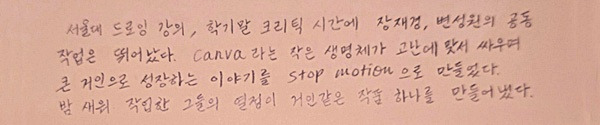 서울대 드로잉 강의, 학기말 크리틱 시간에 장재경, 변성원의 공동
작업은 뛰어났다. Canva 라는 작은 생명체가 고난에 맞서 싸우며
큰 거인으로 성장하는 이야기를 stop motion 으로 만들었다.
밤 새워 작업한 그들의 열정이 거인같은 작품 하나를 만들어냈다.